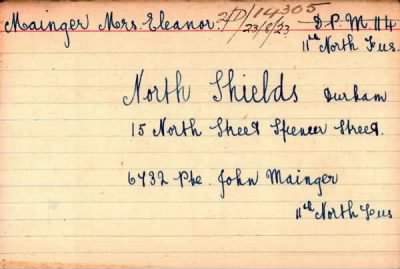 Mainger Mrs. Eleanor. 2/D/14305 D.P.M 114
23/8/23 11th North Fus.
North Shields Durham
15 North Street Spencer Street.
6732 Pte. John Mainger
11th North Fus